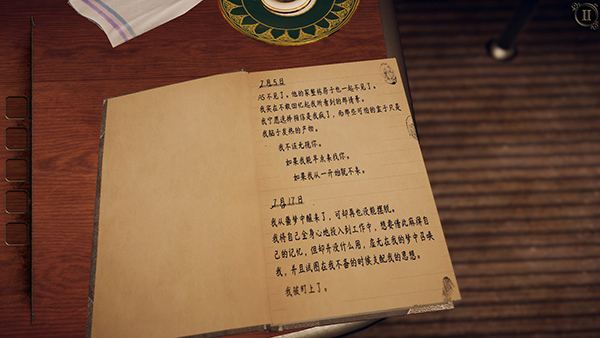 7月5日
AS不见了。他的家整栋房子也一起不见了。
我实在不敢回忆起我所看到的那情景。
我宁愿选择相信是我疯了，而那些可怕的盒子只是
我脑子发热的产物。
我不该无视你。
如果我能早点来找你。
如果我从一开始就不来。
7月17日
我从噩梦中醒来了，可却再也没能摆脱。
我将自己全身心地投入到工作中，想要借此麻痹自
己的记忆，但却并没什么用，虚无在我的梦中召唤
我，并且试图在我不备的时候支配我的思想。
我被盯上了。